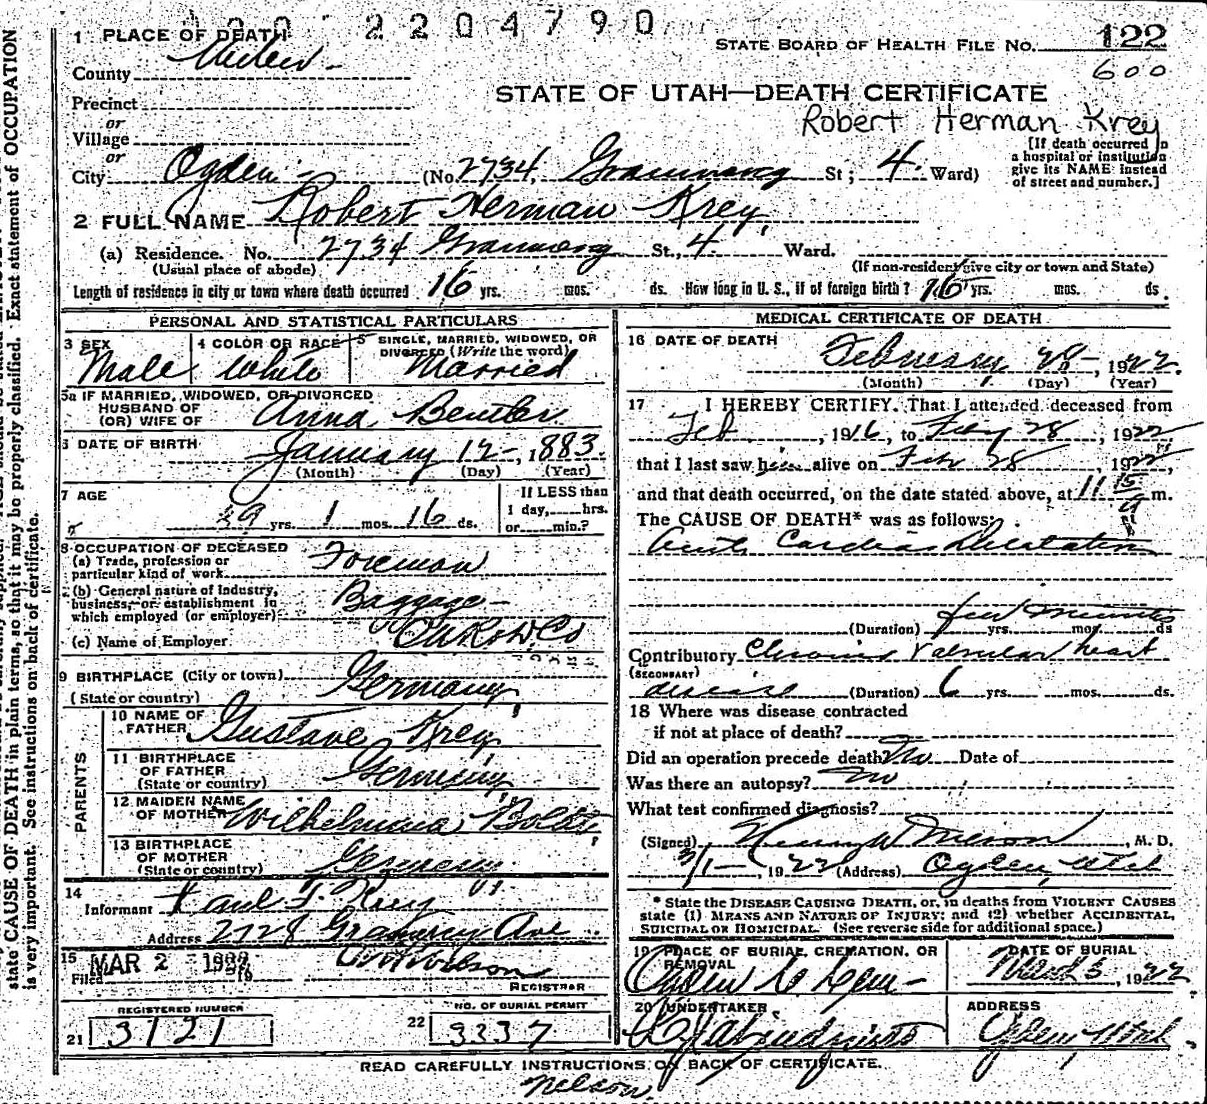 2204790
1 PLACE OF DEATH
STATE BOARD OF HEALTH FILE No. 122
County
600
STATE OF UTAH—DEATH CERTIFICATE
Precinct
or
Robert Herman Krey
Village
or
[If death occurred in a hospital or institution give its NAME instead of street and number.]
City Ogden (No. 2734, St; 4. Ward)
2 FULL NAME Robert Herman Krey,
(a) Residence. No. 2734 St., 4. Ward.
(Usual place of abode) (If non-resident give city or town and State)
Length of residence in city or town where death occurred 16 yrs. mos. ds. How long in U. S., if of foreign birth? 16 yrs. mos. ds.
PERSONAL AND STATISTICAL PARTICULARS
3 SEX Male
4 COLOR OR RACE White
5 SINGLE, MARRIED, WIDOWED, OR DIVORCED (Write the word) Married
5a IF MARRIED, WIDOWED, OR DIVORCED
HUSBAND OF
(OR) WIFE OF Anna Beutler
6 DATE OF BIRTH January 12-, 1883
(Month) (Day) (Year)
7 AGE 39 yrs. 1 mos. 16 ds.
If LESS than
1 day, hrs.
or min.?
8 OCCUPATION OF DECEASED
(a) Trade, profession or
particular kind of work Foreman
(b) General nature of Industry,
business, or establishment in
which employed (or employer) Baggage-
(c) Name of Employer
9 BIRTHPLACE (City or town)
(State or country) Germany,
PARENTS
10 NAME OF
FATHER Gustave Krey
11 BIRTHPLACE
OF FATHER
(State or country) Germany
12 MAIDEN NAME
OF MOTHER Wilhelmina Boldt,
13 BIRTHPLACE
OF MOTHER
(State or country) Germany
14
Informant Krey
Address Ave
15
Filed MAR 2 1922 19
REGISTRAR
REGISTERED NUMBER
21 3121
NO. OF BURIAL PERMIT
22 3337
MEDICAL CERTIFICATE OF DEATH
16 DATE OF DEATH
February 28-, 1922.
(Month) (Day) (Year)
17 I HEREBY CERTIFY, That I attended deceased from
Feb, 1916, to 28, 1922
that I last saw him alive on Feb 28, 1922,
and that death occurred, on the date stated above, at 11 15 m.
The CAUSE OF DEATH* was as follows:
Acute Cardiac Dilatation
(Duration) few minutes yrs. mos. ds
Contributory Chronic Valvular heart
(SECONDARY)
disease (Duration) 6 yrs. mos. ds.
18 Where was disease contracted
if not at place of death?
Did an operation precede death? No Date of
Was there an autopsy? No
What test confirmed diagnosis?
(Signed) M. D.
3/1-, 1922 (Address) Ogden, Utah
* State the DISEASE CAUSING DEATH, or, in deaths from VIOLENT CAUSES
state (1) MEANS AND NATURE OF INJURY; and (2) whether ACCIDENTAL,
SUICIDAL OR HOMICIDAL. (See reverse side for additional space.)
19 PLACE OF BURIAL, CREMATION, OR
REMOVAL
Ogden
DATE OF BURIAL
March 5, 1922
20 UNDERTAKER
ADDRESS
Ogden, Utah
READ CAREFULLY INSTRUCTIONS ON BACK OF CERTIFICATE.
Nelson.
state CAUSE OF DEATH in plain terms, so that it may be properly classified. Exact statement of OCCUPATION
is very important. See instructions on back of certificate.